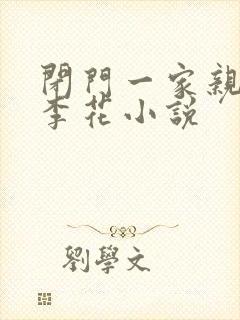 閉門一家親
李花小説
劉學文